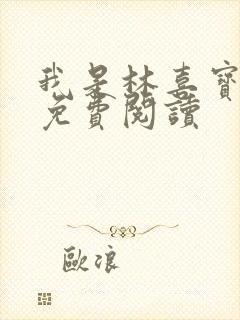 我是林喜寶
免費閱讀
歐浪